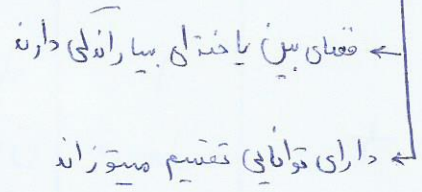 ← فضای بین یاخته‌ای بسیار اندکی دارند
← دارای توانایی تقسیم میتوزاند